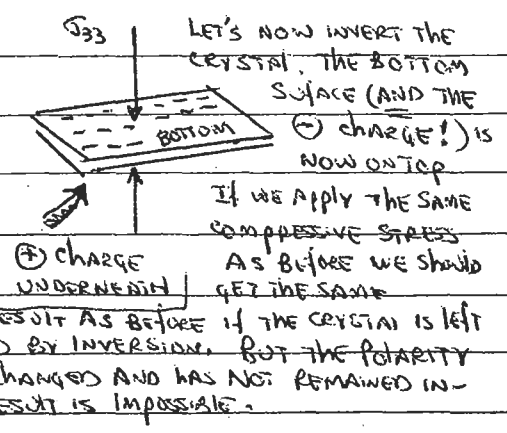 σ33
LET'S NOW INVERT THE
CRYSTAL. THE BOTTOM
SURFACE (AND THE
⊖ CHARGE!) IS
BOTTOM
NOW ON TOP
If WE APPLY THE SAME
COMPRESSIVE STRESS
⊕ CHARGE
AS BEFORE WE ShOULD
UNDERNEATH
GET THE SAME
ESULT AS BEFORE if THE CRYSTAL IS LEFT
D BY INVERSION. BUT THE POLARITY
HANGED AND HAS NOT REMAINED IN-
ESULT IS IMPOSSIBLE.